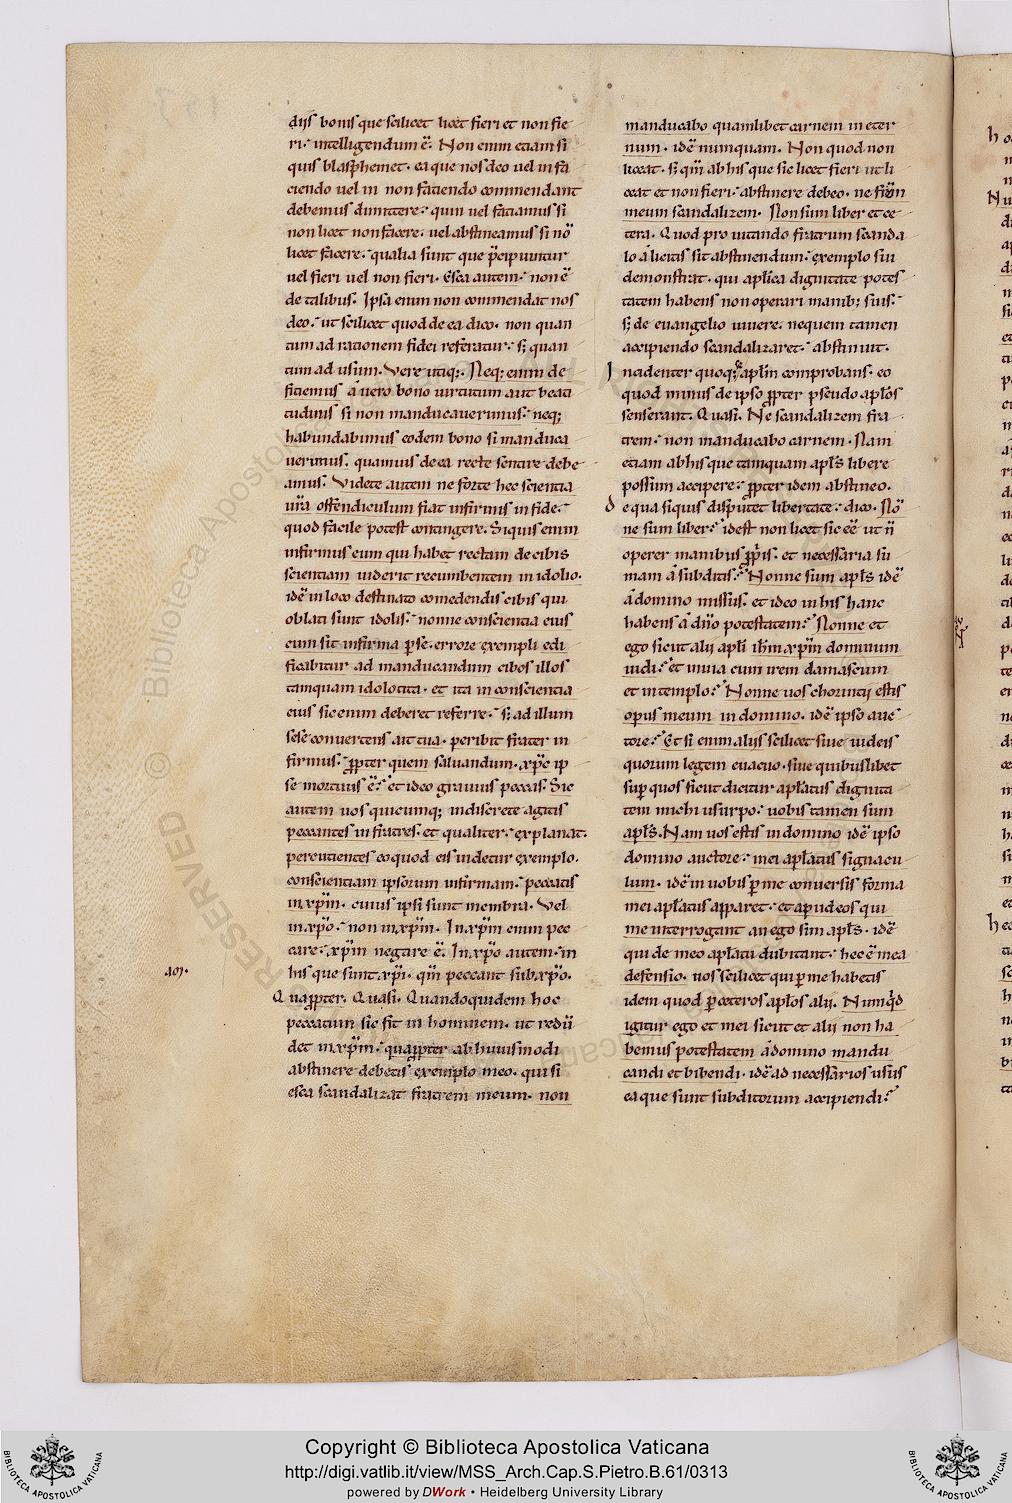 diis bonis que scilicet licet fieri et non fie
ri. intelligendum ē. Non enim etiam si
quis blasphemet. ea que nos deo uel in fa
ciendo uel in non faciendo commendant
debemus dimittere. quin uel faciamus si
non licet non facere. uel abstineamus si nō
licet facere. qualia sunt que p̄cipiuntur
uel fieri uel non fieri. Esca autem. non ē
de talibus. Ipsa enim non commendat nos
deo. ut scilicet quod de ea dico. non quan
tum ad rationem fidei referatur. s; quan
tum ad usum. Vere utiq;. Neq; enim de
ficiemus a uero bono uirtutum aut beati
tudinis si non manducauerimus. neq;
habundabimus eodem bono si manduca
uerimus. quamuis de ea recte sentire debe
amus. Videte autem ne forte hec scientia
ur̄a offendiculum fiat infirmis in fide.
quod facile potest contingere. Siquis enim
infirmus eum qui habet rectam de cibis
scientiam uiderit recumbentem in idolio.
idē in loco destinato comedendis cibis qui
oblati sunt idolis. nonne conscientia eius
cum sit infirma p se. errore exempli edi
ficabitur ad manducandum cibos illos
tamquam idolotita. et ita in conscientia
eius sic enim deberet referre. s; ad illum
sese conuertens ait tua. peribit frater in
firmus. ꝓpter quem saluandum. xp̄c ip
se mortuus ē. et ideo grauius peccas. Sic
autem uos quicumq; indiscrete agitis
peccantes in fratres. et qualiter. explanat.
percutientes eo quod eis uidetur exemplo.
conscientiam ipsorum infirmam. peccatis
in xp̄m. cuius ipsi sunt membra. Vel
in xp̄o. non in xp̄m. In xp̄m enim pec
care. xp̄m negare ē. In xp̄o autem. in
his que sunt xp̄i. qm̄ peccant sub xp̄o.
Quapropter. Quasi. Quandoquidem hoc
peccatum sic fit in hominem. ut redū
det in xp̄m. quapropter ab huiusmodi
abstinere debetis exemplo meo. qui si
esca scandalizat fratrem meum. non
manducabo quamlibet carnem in eter
num. idē numquam. Non quod non
liceat. s; qm̄ ab his que sic licet fieri ut li
ceat et non fieri. abstinere debeo. ne frēm
meum scandalizem. Non sum liber et ce
tera. Quod pro uitando fratrum scanda
lo a licitis sit abstinendum. exemplo sui
demonstrat. qui ap̄lica dignitate potes
tatem habens non operari manib; suis.
s; de euangelio uiuere. nequem tamen
accipiendo scandalizaret. abstinuit.
Inadenter quoq; se ap̄lm̄ comprobans. eo
quod minus de ipso ꝓpter pseudo ap̄los
senserant. Quasi. Ne scandalizem fra
trem. non manducabo carnem. Nam
etiam ab his que tamquam ap̄ls libere
possum accipere. ꝓpter idem abstineo.
de qua siquis disputet libertate. dico. Nō
ne sum liber. idest non licet sic eē ut n̄
operer manibus ꝓpriis. et necessaria su
mam a subditis. Nonne sum ap̄ls idē
a domino missus. et ideo in his hanc
habens a dn̄o potestatem. Nonne et
ego sicut alii ap̄li ih̄m xp̄m dominum
uidi. et in uia cum irem damascum
et in templo. Nonne uos chorintii estis
opus meum in domino. idē ipso auc
tore. Et si enim aliis scilicet siue iudeis
quorum legem euacuo. siue quibuslibet
sup̄ quos sicut dicitur ap̄latus dignita
tem michi usurpo. uobis tamen sum
ap̄ls. Nam uos estis in domino idē ipso
domino auctore. mei ap̄latus signacu
lum. idē in uobis p me conuersis forma
mei ap̄latus apparet. et apud eos qui
me interrogant an ego sim ap̄ls. idē
qui de meo ap̄latu dubitant. hec ē mea
defensio. uos scilicet qui p me habetis
idem quod p ceteros ap̄los alii. Numqd̄
igitur ego et mei sicut et alii non ha
bemus potestatem a domino mandu
candi et bibendi. idē ad necessarios usus
ea que sunt subditorum accipiendi.
Copyright © Biblioteca Apostolica Vaticana
http://digi.vatlib.it/view/MSS_Arch.Cap.S.Pietro.B.61/0313
powered by DWork • Heidelberg University Library
BIBLIOTECA APOSTOLICA VATICANA
BIBLIOTECA APOSTOLICA VATICANA